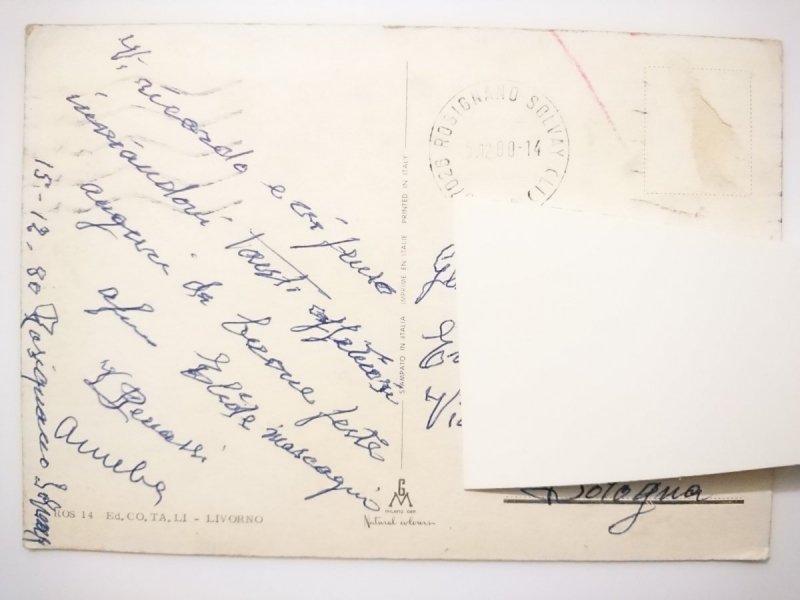 Vi ricordo e vi penso
inviandovi tanti affettuosi
auguri di buone feste
Elide Mascagni
Benassi
15-12-80 Rosignano Solvay
ROS 14 Ed. CO. TA. LI - LIVORNO
STAMPATO IN ITALIA IMPRIME EN ITALIE PRINTED IN ITALY
GM
MILANO
Natural colours
ROSIGNANO SOLVAY (LI)
.12.80-14
Via
Bologna